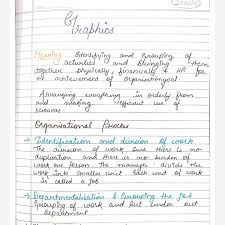 Graphics
Meaning Identifying and Grouping of
activities and Bringing them
together physically, financially & HR for
achievement of organisational
Arranging everything in orderly from
and making efficient use of
resources.
Organisational Process
→ Identification and division of work
The division of work sure there is no
duplication and there is no burden of
work one Person. The manager divides the
work into smaller unit Each unit of work
is called a job.
→ Departmentalisation & Grouping the Job
Grouping of work and put under one
department